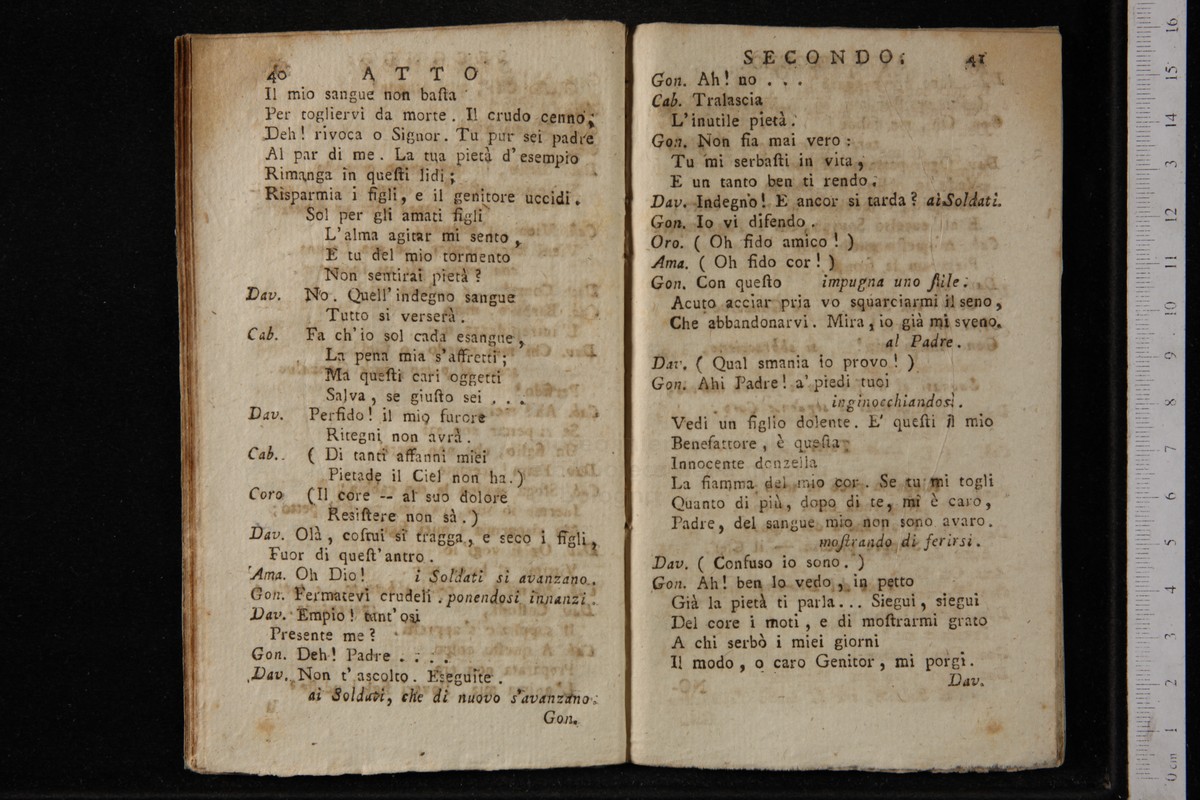 40 ATTO
Il mio sangue non baſta
Per togliervi da morte. Il crudo cenno;
Deh! rivoca o Signor. Tu pur sei padre
Al par di me. La tua pietà d'esempio
Rimanga in queſti lidi;
Risparmia i figli, e il genitore uccidi.
Sol per gli amati figli
L'alma agitar mi sento,
E tu del mio tormento
Non sentirai pietà?
Dav. No. Quell'indegno sangue
Tutto si verserà.
Cab. Fa ch'io sol cada esangue,
La pena mia s'affretti;
Ma queſti cari oggetti
Salva, se giuſto sei . . .
Dav. Perfido! il mio furore
Ritegni non avrà.
Cab. ( Di tanti affanni miei
Pietade il Ciel non ha.)
Coro (Il core -- al suo dolore
Resiſtere non sà.)
Dav. Olà, coſtui si tragga, e seco i figli,
Fuor di queſt'antro.
Ama. Oh Dio! i Soldati si avanzano.
Gon. Fermatevi crudeli. ponendosi innanzi.
Dav. Empio! tant'osi
Presente me?
Gon. Deh! Padre . . . .
Dav. Non t'ascolto. Eseguite.
ai Soldati, che di nuovo s'avanzano.
Gon.
SECONDO. 41
Gon. Ah! no . . .
Cab. Tralascia
L'inutile pietà.
Gon. Non fia mai vero:
Tu mi serbaſti in vita,
E un tanto ben ti rendo.
Dav. Indegno! E ancor si tarda? ai Soldati.
Gon. Io vi difendo.
Oro. ( Oh fido amico! )
Ama. ( Oh fido cor! )
Gon. Con queſto impugna uno ſtile.
Acuto acciar pria vo squarciarmi il seno,
Che abbandonarvi. Mira, io già mi sveno.
al Padre.
Dav. ( Qual smania io provo! )
Gon. Ahi Padre! a' piedi tuoi
inginocchiandosi.
Vedi un figlio dolente. E' queſti il mio
Benefattore, è queſta
Innocente donzella
La fiamma del mio cor. Se tu mi togli
Quanto di più, dopo di te, mi è caro,
Padre, del sangue mio non sono avaro.
moſtrando di ferirsi.
Dav. ( Confuso io sono. )
Gon. Ah! ben lo vedo, in petto
Già la pietà ti parla... Siegui, siegui
Del core i moti, e di moſtrarmi grato
A chi serbò i miei giorni
Il modo, o caro Genitor, mi porgi.
Dav.
16
15
14
13
12
11
10
9
8
7
6
5
4
3
2
1
0 cm